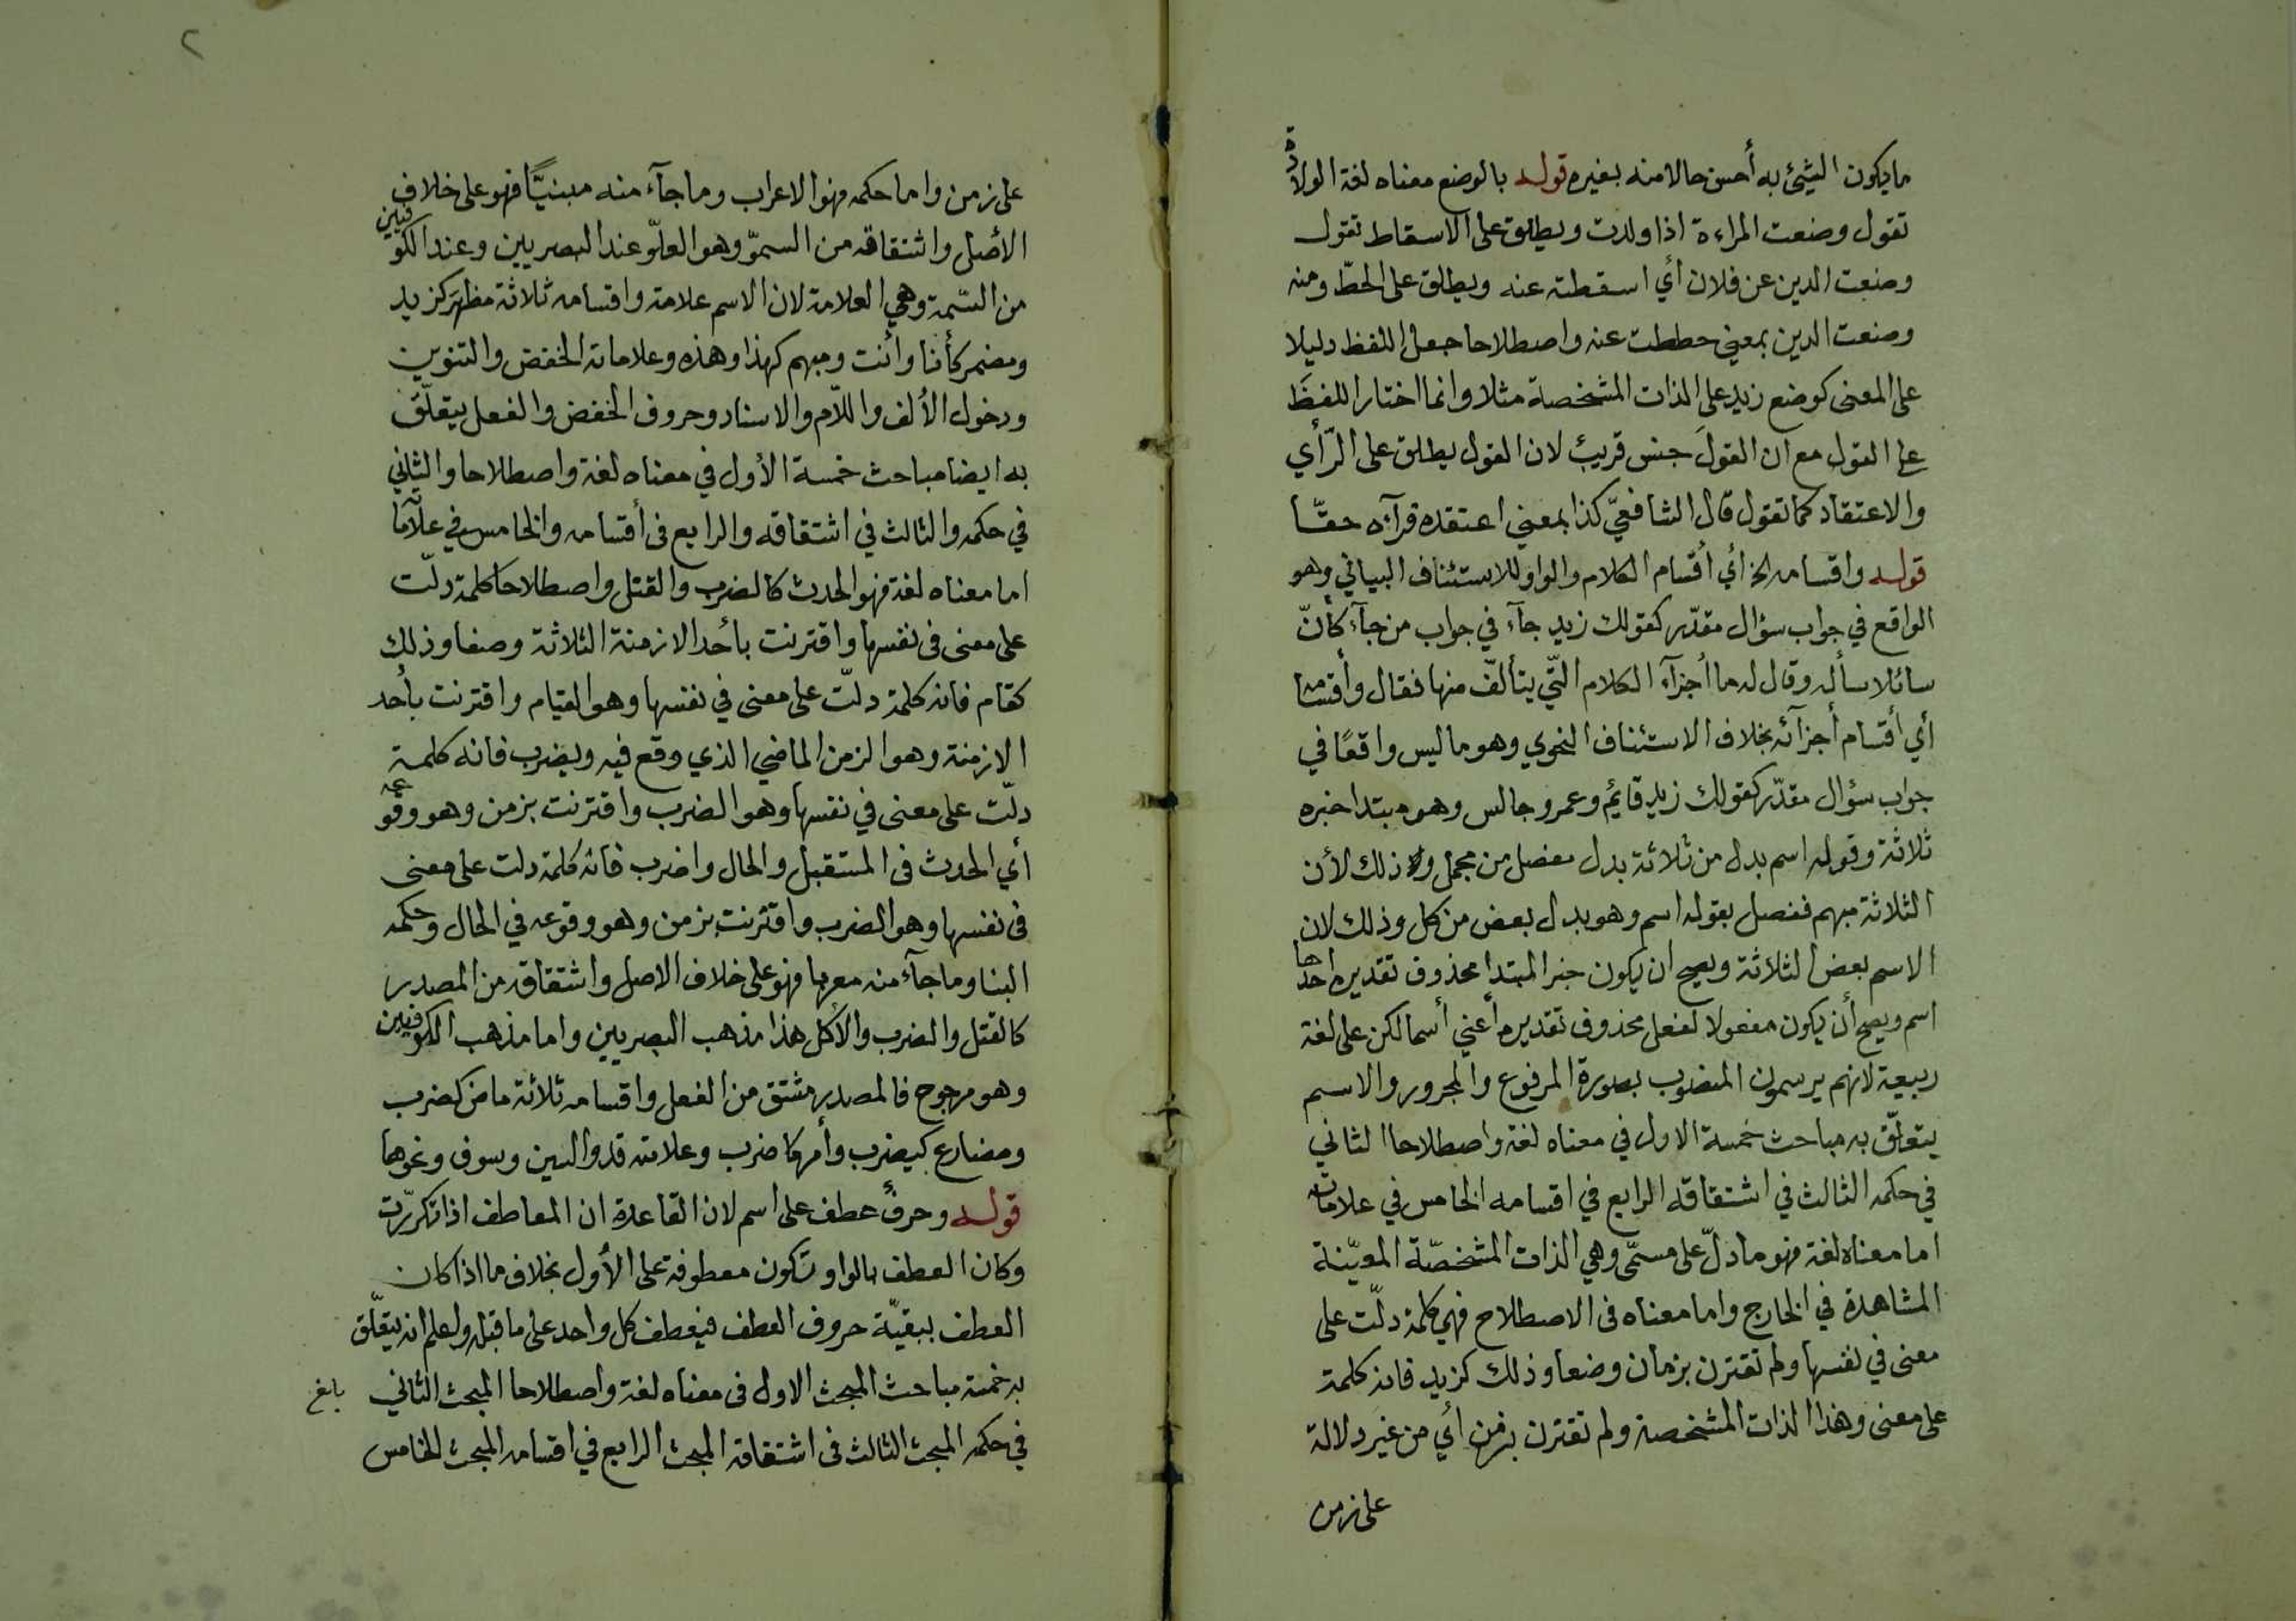 ما يكون الشيئ به أحسن حالا منه بغيره قوله بالوضع معناه لغة الولادة
تقول وضعت المراءة اذا ولدت ويطلق على الاسقاط تقول
وضعت الدين عن فلان أي اسقطته عنه ويطلق على الحطّ ومنه
وضعت الدين بمعني حططت عنه واصطلاحا جعل اللفظ دليلا
على المعنى كوضع زيد على الذات المشخصة مثلا وانما اختار اللفظَ
على القول مع ان القولَ جنس قريبٌ لان القول يطلق على الرّأي
والاعتقاد كما تقول قال الشافعيّ كذا بمعني اعتقده قرآءه حقّا
قوله واقسامه الخ أي أقسام الكلام والواو للاستئناف البياني وهو
الواقع في جواب سؤال مقدّر كقولك زيد جآء في جواب من جآء كأنّ
سائلا سأله وقال له ما أجزآء الكلام الّتي يتألّف منها فقال وأقسامه
أي أقسام أجزآئه بخلاف الاستئناف النحوي وهو ما ليس واقعًا في
جواب سؤال مقدّر كقولك زيد قايم وعمرو جالس وهو مبتدا خبره
ثلاثة وقوله اسم بدل من ثلاثة بدل مفصل من مجمل وذلك لأن
الثلاثة مبهم ففصل بقوله اسم وهو بدل بعض من كل وذلك لان
الاسم بعض الثلاثة ويصح ان يكون خبر المبتدا محذوف تقديره احدها
اسم ويصح أن يكون مفعولا لفعل محذوف تقديره أعني أسما لكن على لغة
ربيعة لانهم يرسمون المنصوب بصورة المرفوع والمجرور والاسم
يتعلّق به مباحث خمسة الاول في معناه لغة واصطلاحا الثاني
في حكمه الثالث في اشتقاقه الرابع في اقسامه الخامس في علاماته
اما معناه لغة فهو ما دلّ على مسمّى وهي الذات المشخصّة المعيّنة
المشاهدة في الخارج واما معناه فى الاصطلاح فهي كلمة دلّت على
معنى في نفسها ولم تقترن بزمان وضعا وذلك كزيد فانه كلمة
على معنى وهذا الذات المشخصة ولم تقترن بزمن أي من غير دلالة
على زمن
٢
على زمن واما حكمه فهو الاعراب وما جآء منه مبنيًّا فهو على خلاف
الأصل واشتقاقه من السموّ وهو العلوّ عند البصريين وعند الكوفيين
من السّمة وهي العلامة لان الاسم علامة واقسامه ثلاثة مظهَر كزيد
ومضمر كأنا وأنت ومبهم كهذا وهذه وعلاماته الخفض والتنوين
ودخول الألف واللاّم والاسناد وحروف الخفض والفعل يتعلّق
به ايضا مباحث خمسة الأول في معناه لغة واصطلاحا والثاني
في حكمه والثالث في اشتقاقه والرابع فى أقسامه والخامس في علاماته
اما معناه لغة فهو الحدث كالضرب والقتل واصطلاحا كلمة دلّت
على معنى فى نفسها واقترنت بأحد الازمنة الثلاثة وضعا وذلك
كقام فانه كلمة دلّت على معنى في نفسها وهو القيام واقترنت بأحد
الازمنة وهو الزمن الماضي الذي وقع فيه ويضرب فانه كلمة
دلّت على معنى في نفسها وهو الضرب واقترنت بزمن وهو وقوعه
أي الحدوث فى المستقبل والحال واضرب فانه كلمة دلت على معنى
فى نفسها وهو الضرب واقترنت بزمن وهو وقوعه في الحال وحكمه
البنا وما جآء منه معربا فهو على خلاف الاصل واشتقاقه من المصدر
كالقتل والضرب والاكل هذا مذهب البصريين واما مذهب الكوفيين
وهو مرجوح فالمصدر مشتق من الفعل واقسامه ثلاثة ماض كضرب
ومضارع كيضرب وأمر كاضرب وعلامته قد والسين وسوف ونحوها
قوله وحرفٌ عطف على اسم لان القاعدة ان المعاطف اذا تكررّت
وكان العطف بالواو تكون معطوفة على الأول بخلاف ما اذا كان
العطف ببقيّة حروف العطف فيعطف كل واحد على ما قبله ولعلم انه يتعلّق
به خمسة مباحث المبحث الاول فى معناه لغة واصطلاحا المبحث الثاني
في حكمه المبحث الثالث فى اشتقاقه المبحث الرابع في اقسامه المبحث الخامس